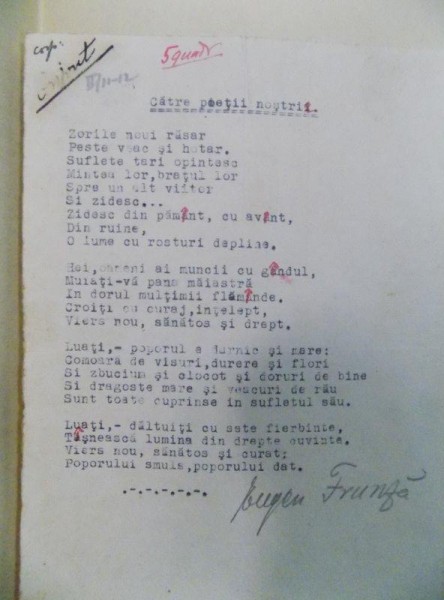 corp:
5 quadr
III/11-12
Către poeții noștri.
Zorile noui răsar
Peste veac și hotar.
Suflete tari opintesc
Mintea lor, brațul lor
Spre un alt viitor
Si zidesc...
Zidesc din pământ, cu avânt,
Din ruine,
O lume cu rosturi depline.
Hei, oameni ai muncii cu gândul,
Muiați-vă pana măiastră
In dorul mulțimii flămânde.
Croiți cu curaj, înțelept,
Viers nou, sănătos și drept.
Luați,- poporul e darnic și mare:
Comoară de visuri, durere și flori
Si zbucium și clocot și doruri de bine
Si dragoste mare și veacuri de rău
Sunt toate cuprinse în sufletul său.
Luați,- dăltuiți cu sete fierbinte,
Tâșnească lumina din drepte cuvinte.
Viers nou, sănătos și curat;
Poporului smuls, poporului dat.
-.-.-.-.-.
Eugen Frunză